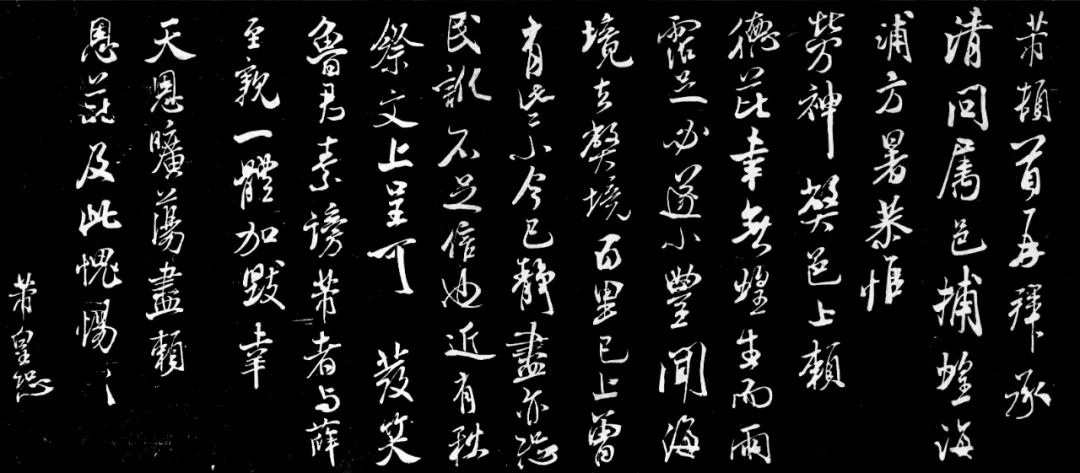 芾頓首再拜承
清問属邑捕蝗海
浦方暑恭惟
勞神 弊邑上賴
德芘幸無蝗生而雨
露足必遂小豐聞海
境去弊境百里已上曾
有些小今已靜盡亦恐
民訛不足信也近有秋
祭文上呈可 發笑
魯君素謗芾者与薛
至親一體加毀幸
天恩曠蕩盡賴
恩芘及此愧惕〻
芾皇恐